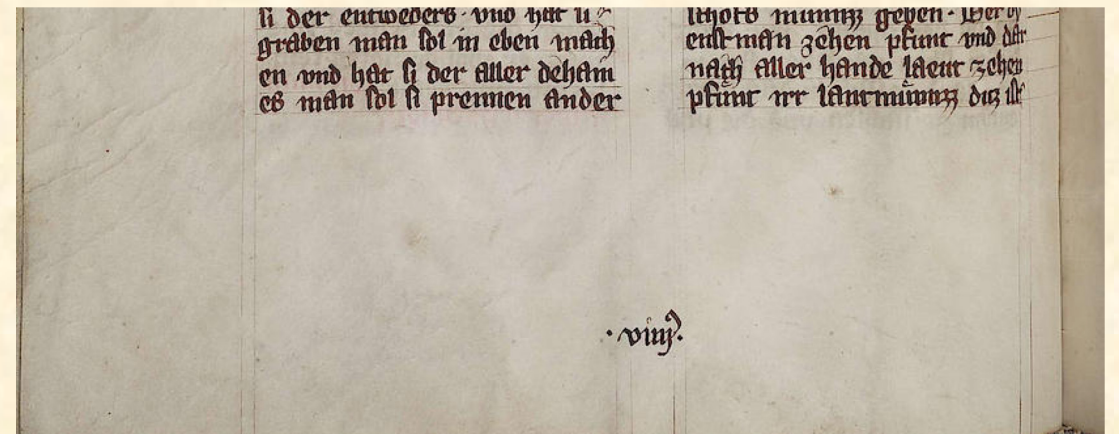 si der entweders · vnd hat si
graben man sol in eben mach
en vnd hat si der aller deham
es man sol si prennen ander
schofs münzz geben · Der
enst man zehen pfunt vnd dar
nach aller hande laeut zehen
pfunt irr lantmünzz diz ist
· viiij